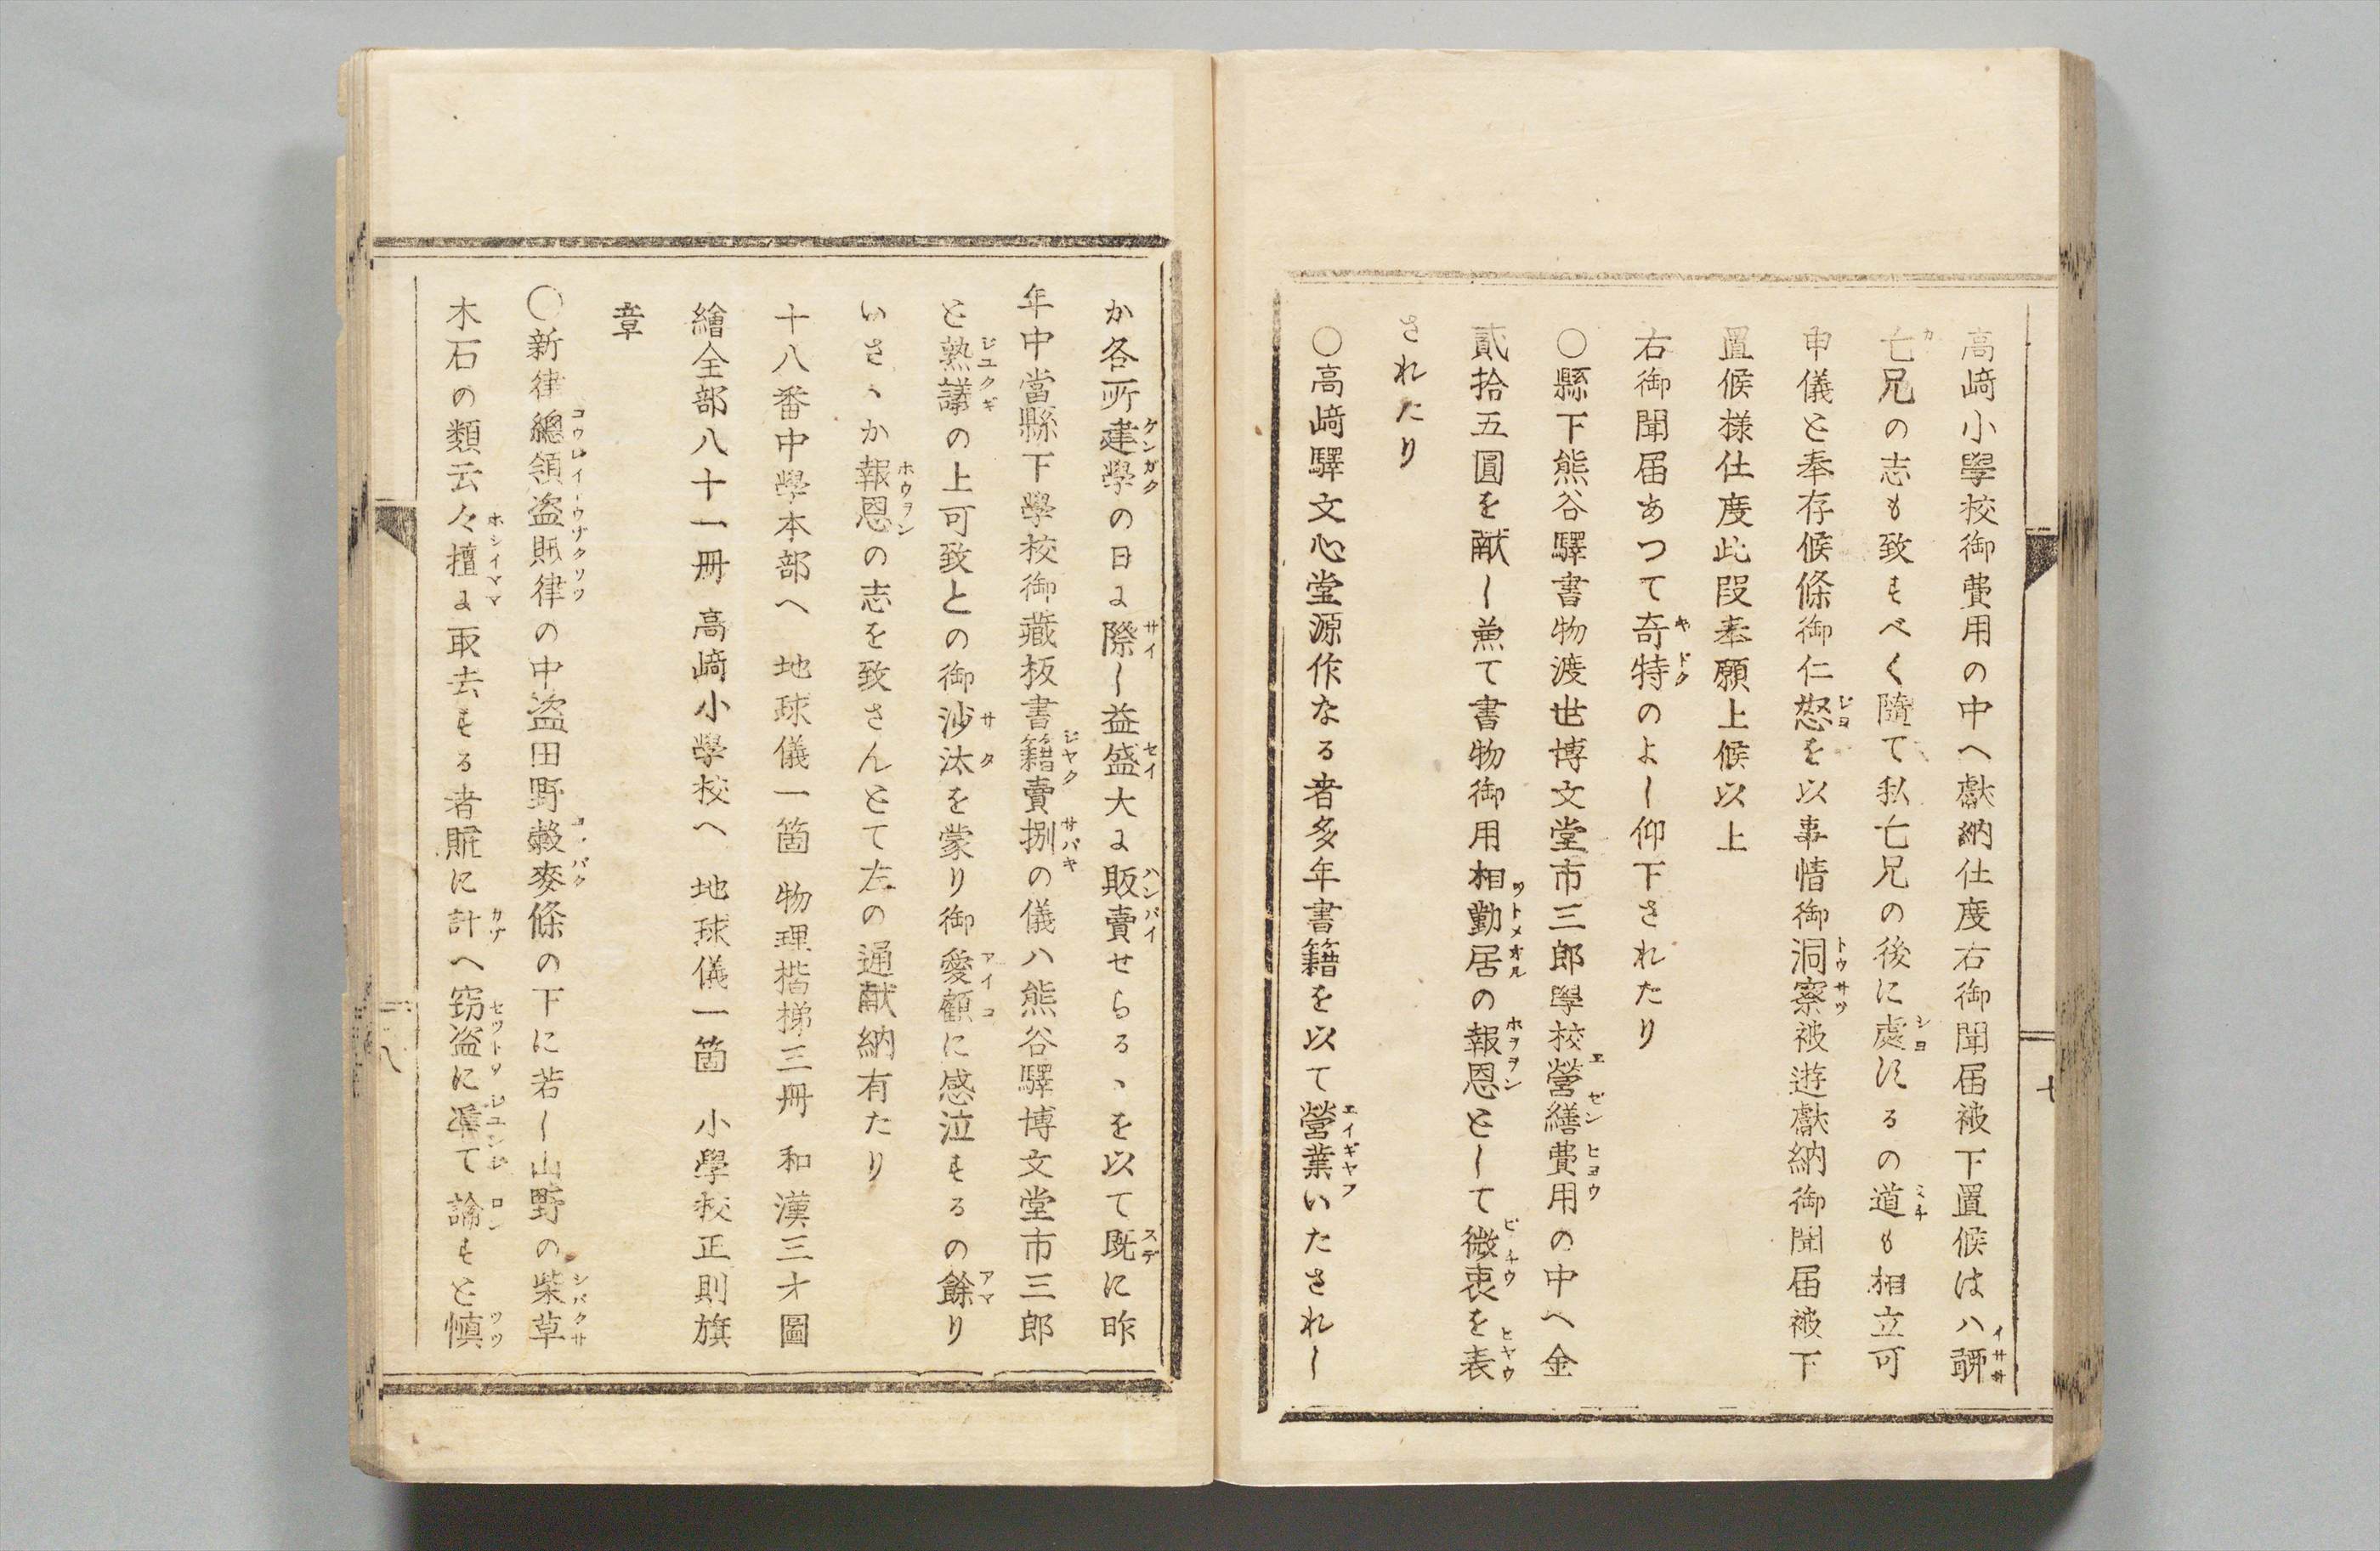 高﨑小學校御費用の中へ獻納仕度右御聞届被下置候はハ聊
亡兄の志も致すべく隨て私亡兄の後に處するの道も相立可
申儀と奉存候條御仁恕を以事情御洞察被遊獻納御聞届被下
置候様仕度此段奉願上候以上
右御聞届あつて奇特のよし仰下されたり
〇縣下熊谷驛書物渡世博文堂市三郎學校營繕費用の中へ金
貳拾五圓を献し兼て書物御用相勤居の報恩として微衷を表
されたり
〇高﨑驛文心堂源作なる者多年書籍を以て營業いたされし
七
か各所建學の日に際し益盛大に販賣せらるゝを以て既に昨
年中當縣下學校御藏板書籍賣捌の儀ハ熊谷驛博文堂市三郎
と熟議の上可致との御沙汰を蒙り御愛顧に感泣するの餘り
いさゝか報恩の志を致さんとて左の通献納有たり
十八番中學本部へ 地球儀一箇 物理楷梯三冊 和漢三才圖
繪全部八十一冊 高﨑小學校へ 地球儀一箇 小學校正則旗
章
〇新律總領盜賊律の中盜田野穀麥條の下に若し山野の柴草
木石の類云々擅に取去する者贓に計へ窃盜に凖て論すと愼
八